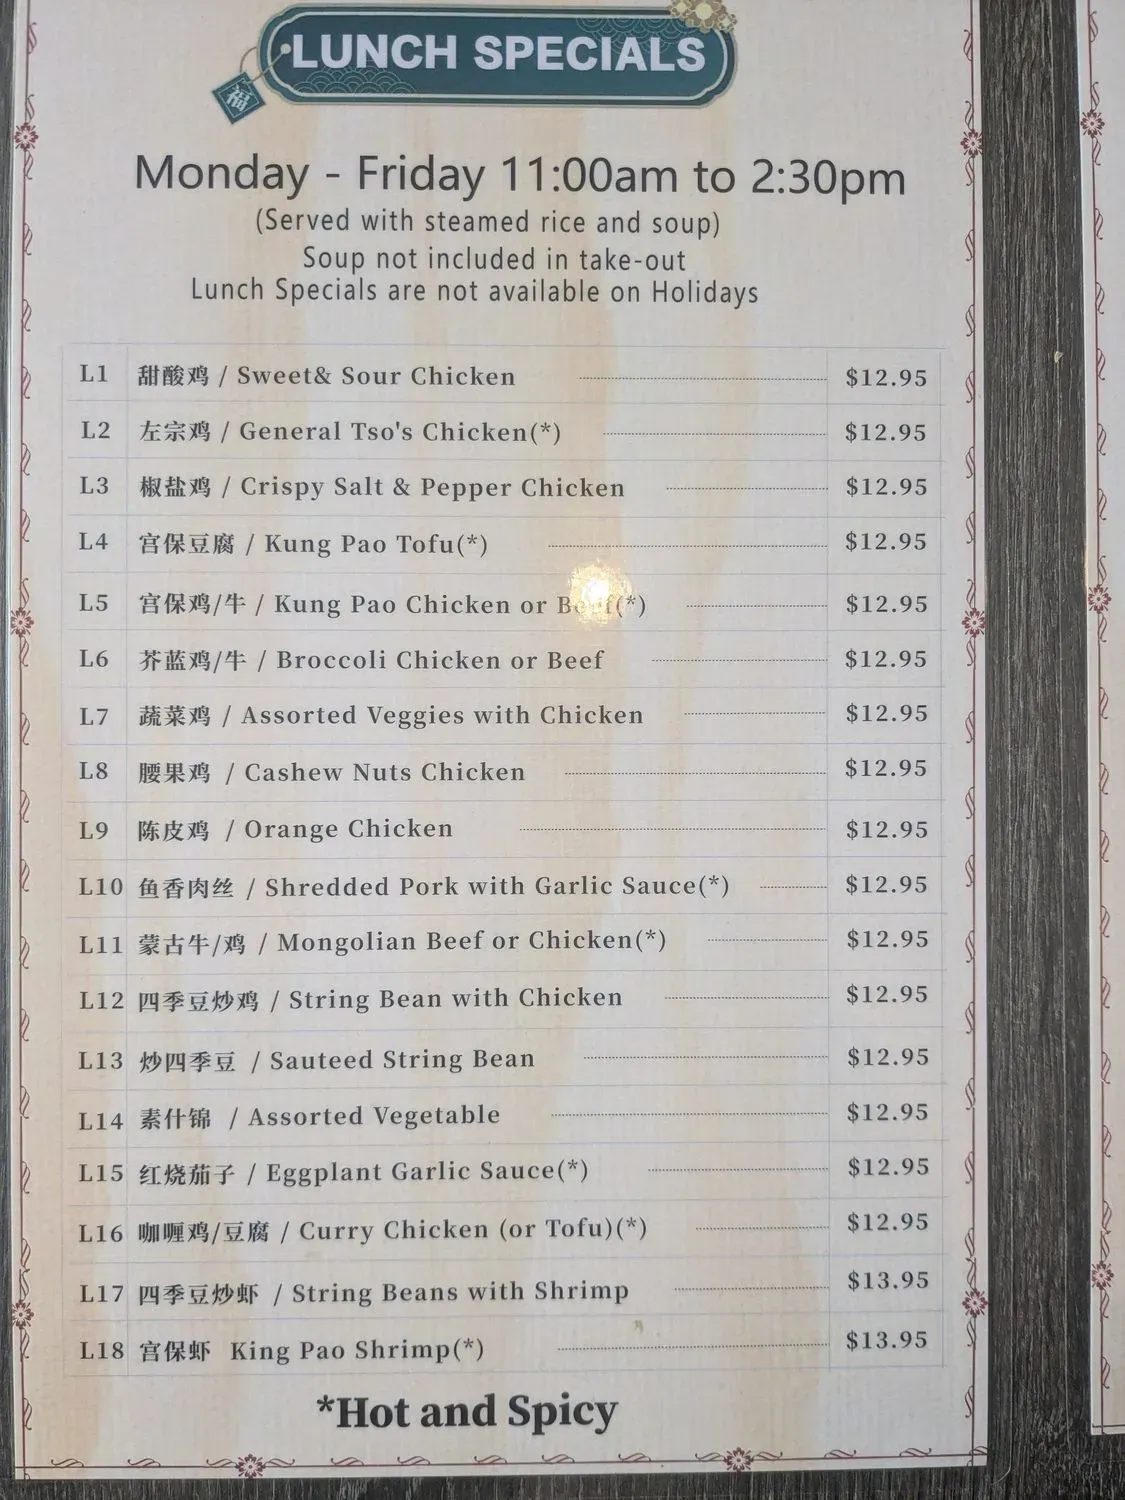 福
LUNCH SPECIALS
Monday - Friday 11:00am to 2:30pm
(Served with steamed rice and soup)
Soup not included in take-out
Lunch Specials are not available on Holidays
L1 甜酸鸡 / Sweet& Sour Chicken $12.95
L2 左宗鸡 / General Tso's Chicken(*) $12.95
L3 椒盐鸡 / Crispy Salt & Pepper Chicken $12.95
L4 宫保豆腐 / Kung Pao Tofu(*) $12.95
L5 宫保鸡/牛 / Kung Pao Chicken or Beef(*) $12.95
L6 芥蓝鸡/牛 / Broccoli Chicken or Beef $12.95
L7 蔬菜鸡 / Assorted Veggies with Chicken $12.95
L8 腰果鸡 / Cashew Nuts Chicken $12.95
L9 陈皮鸡 / Orange Chicken $12.95
L10 鱼香肉丝 / Shredded Pork with Garlic Sauce(*) $12.95
L11 蒙古牛/鸡 / Mongolian Beef or Chicken(*) $12.95
L12 四季豆炒鸡 / String Bean with Chicken $12.95
L13 炒四季豆 / Sauteed String Bean $12.95
L14 素什锦 / Assorted Vegetable $12.95
L15 红烧茄子 / Eggplant Garlic Sauce(*) $12.95
L16 咖喱鸡/豆腐 / Curry Chicken (or Tofu)(*) $12.95
L17 四季豆炒虾 / String Beans with Shrimp $13.95
L18 宫保虾 King Pao Shrimp(*) $13.95
*Hot and Spicy